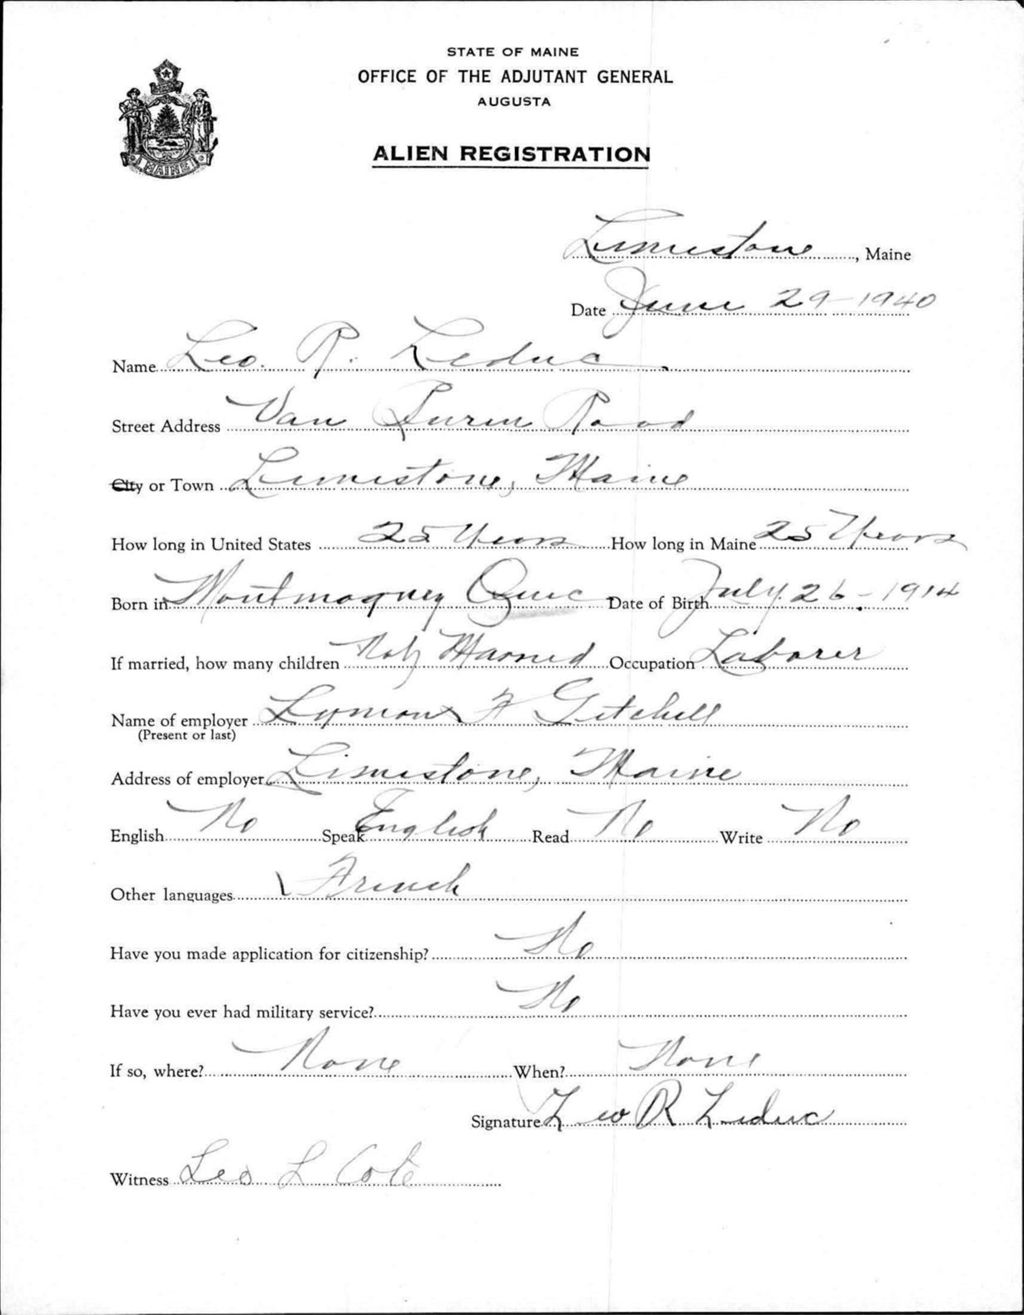 STATE OF MAINE
OFFICE OF THE ADJUTANT GENERAL
AUGUSTA
ALIEN REGISTRATION
MAINE
Limestone, Maine
Date June 29 - 1940
Name Leo. R. Leduc
Street Address Van Buren Road
City or Town Limestone, Maine
How long in United States 25 Years How long in Maine 25 Years
Born in Montmagney Quec Date of Birth July 26 - 1914
If married, how many children Not Married Occupation Laborer
Name of employer Lyman F Getchell
(Present or last)
Address of employer Limestone, Maine
English No Speak English Read No Write No
Other languages French
Have you made application for citizenship? No
Have you ever had military service? No
If so, where? None When? None
Signature Leo R Leduc
Witness Leo L Cote